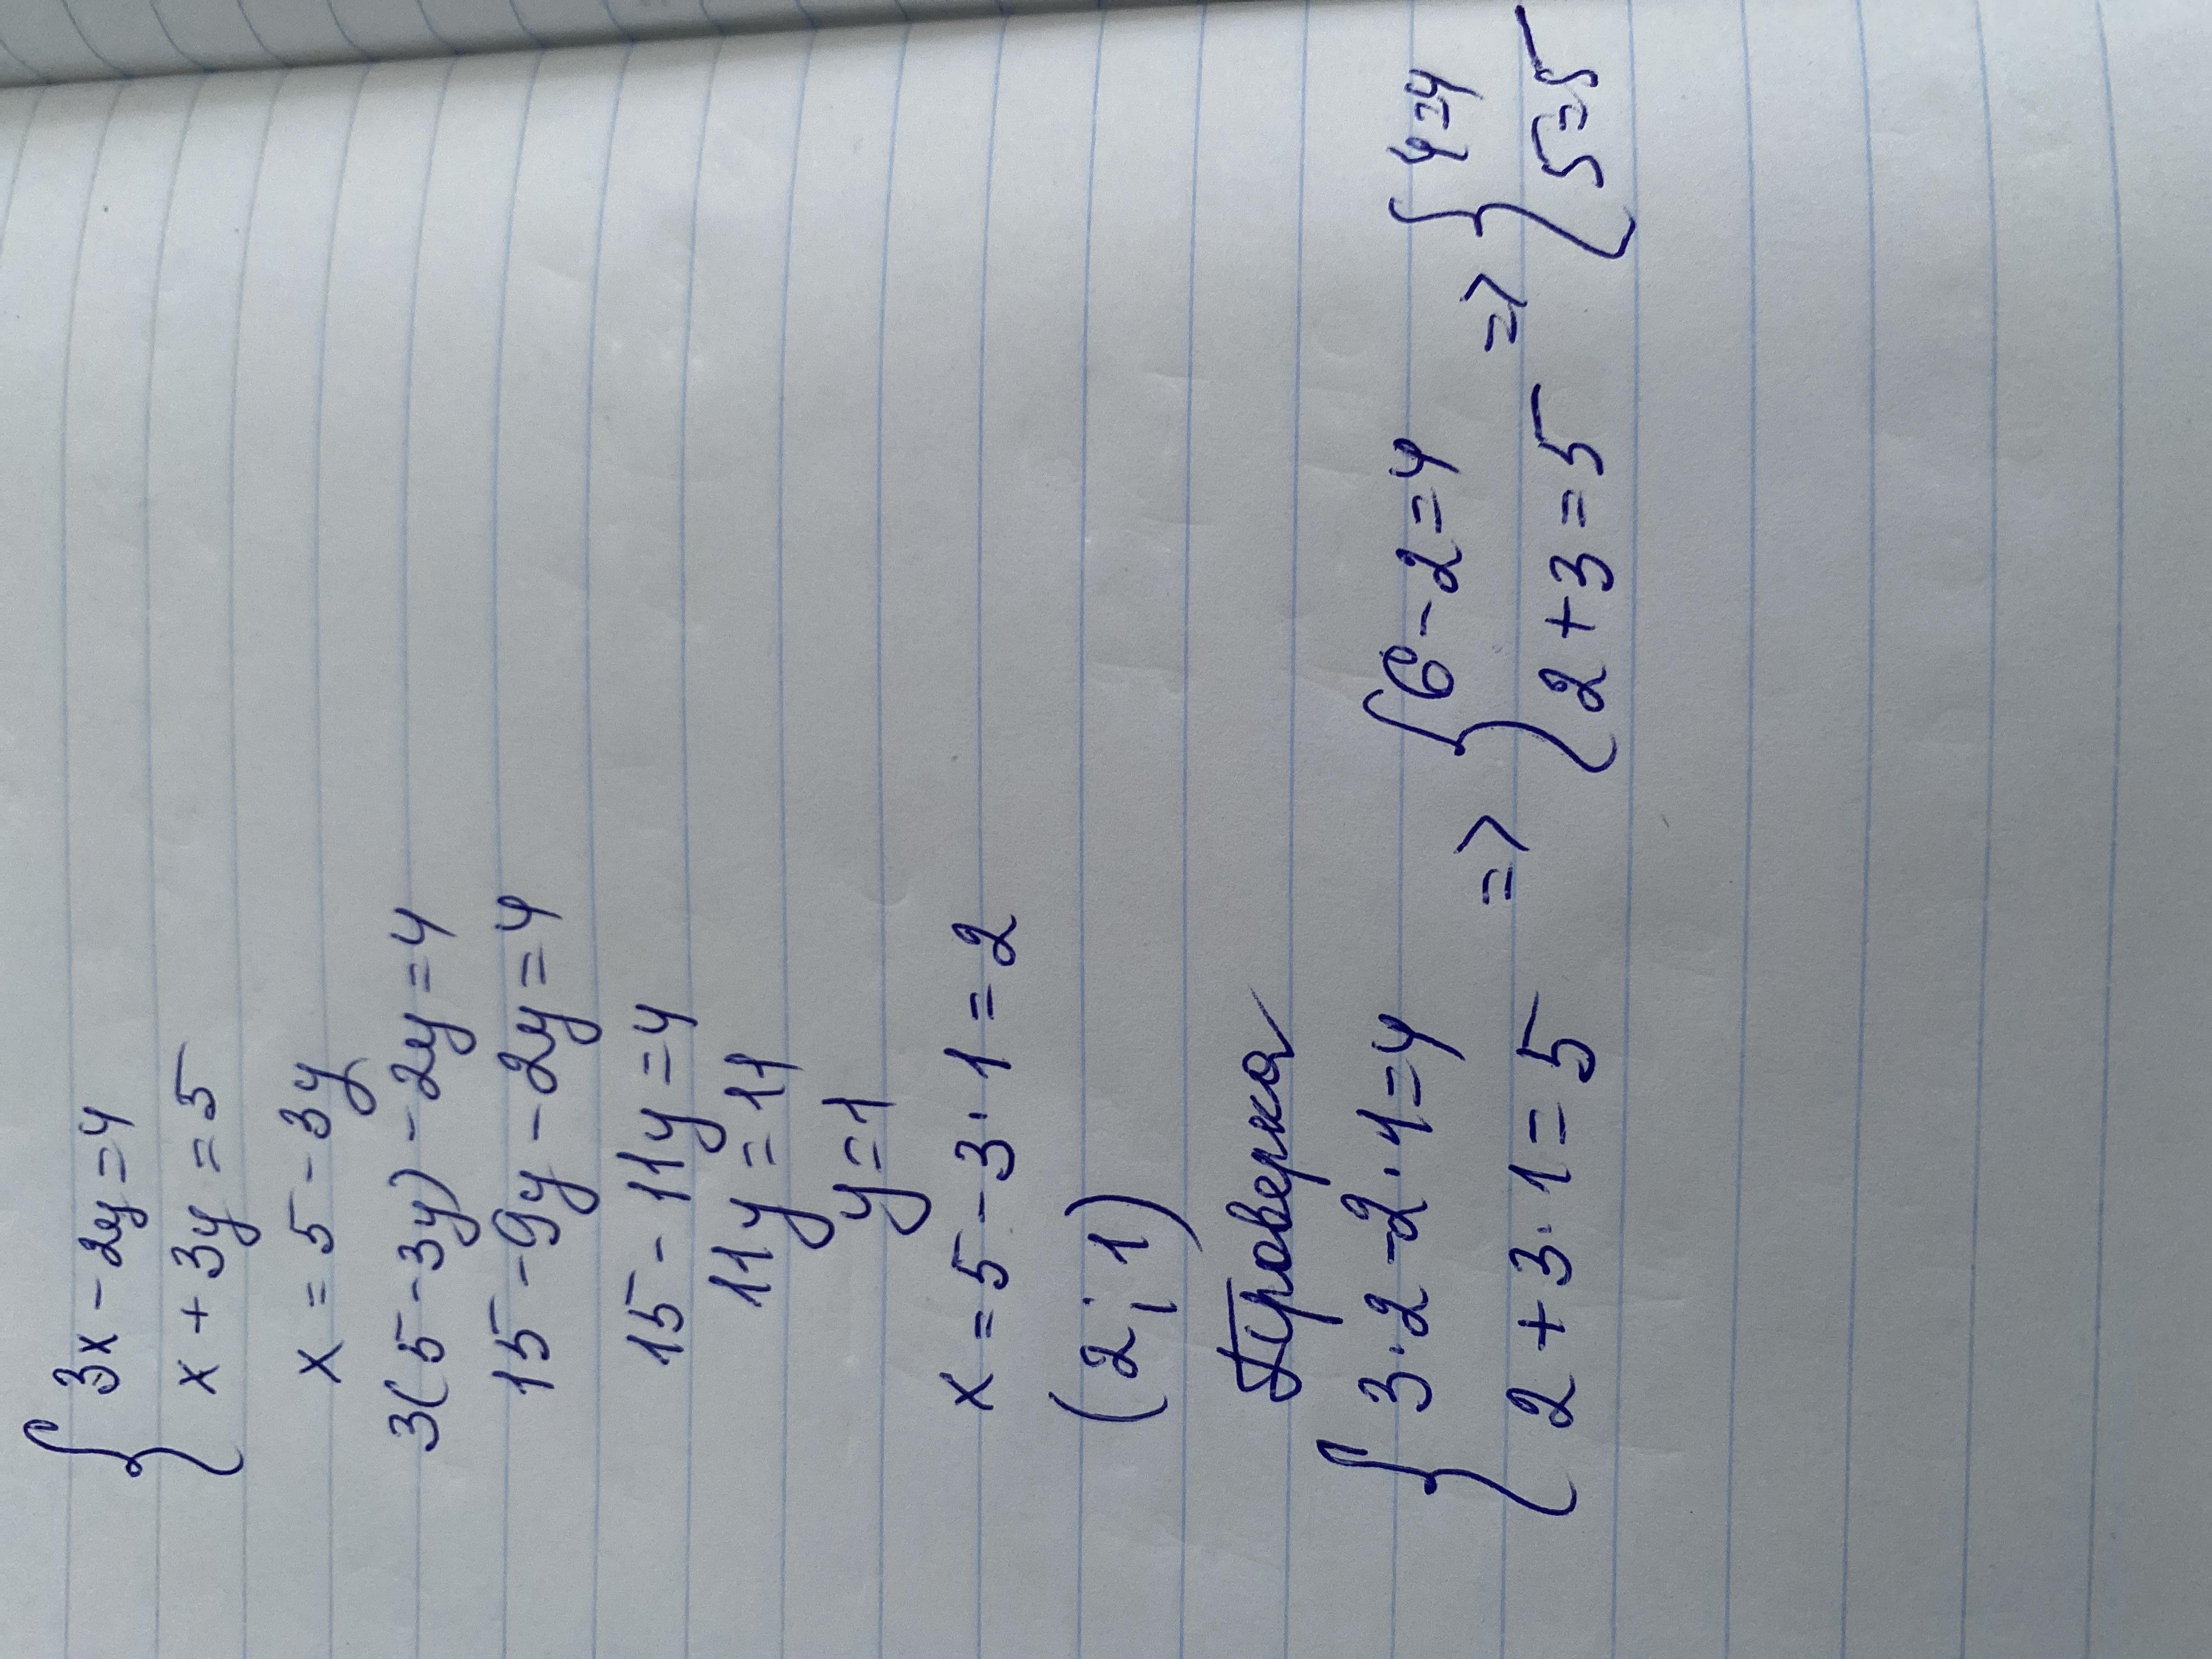 { 3x - 2y = 4
x + 3y = 5
x = 5 - 3y
3(5 - 3y) - 2y = 4
15 - 9y - 2y = 4
15 - 11y = 4
11y = 11
y = 1
x = 5 - 3 · 1 = 2
(2; 1)
Проверка
{ 3 · 2 - 2 · 1 = 4 => { 6 - 2 = 4 => { 4 = 4
2 + 3 · 1 = 5 2 + 3 = 5 5 = 5